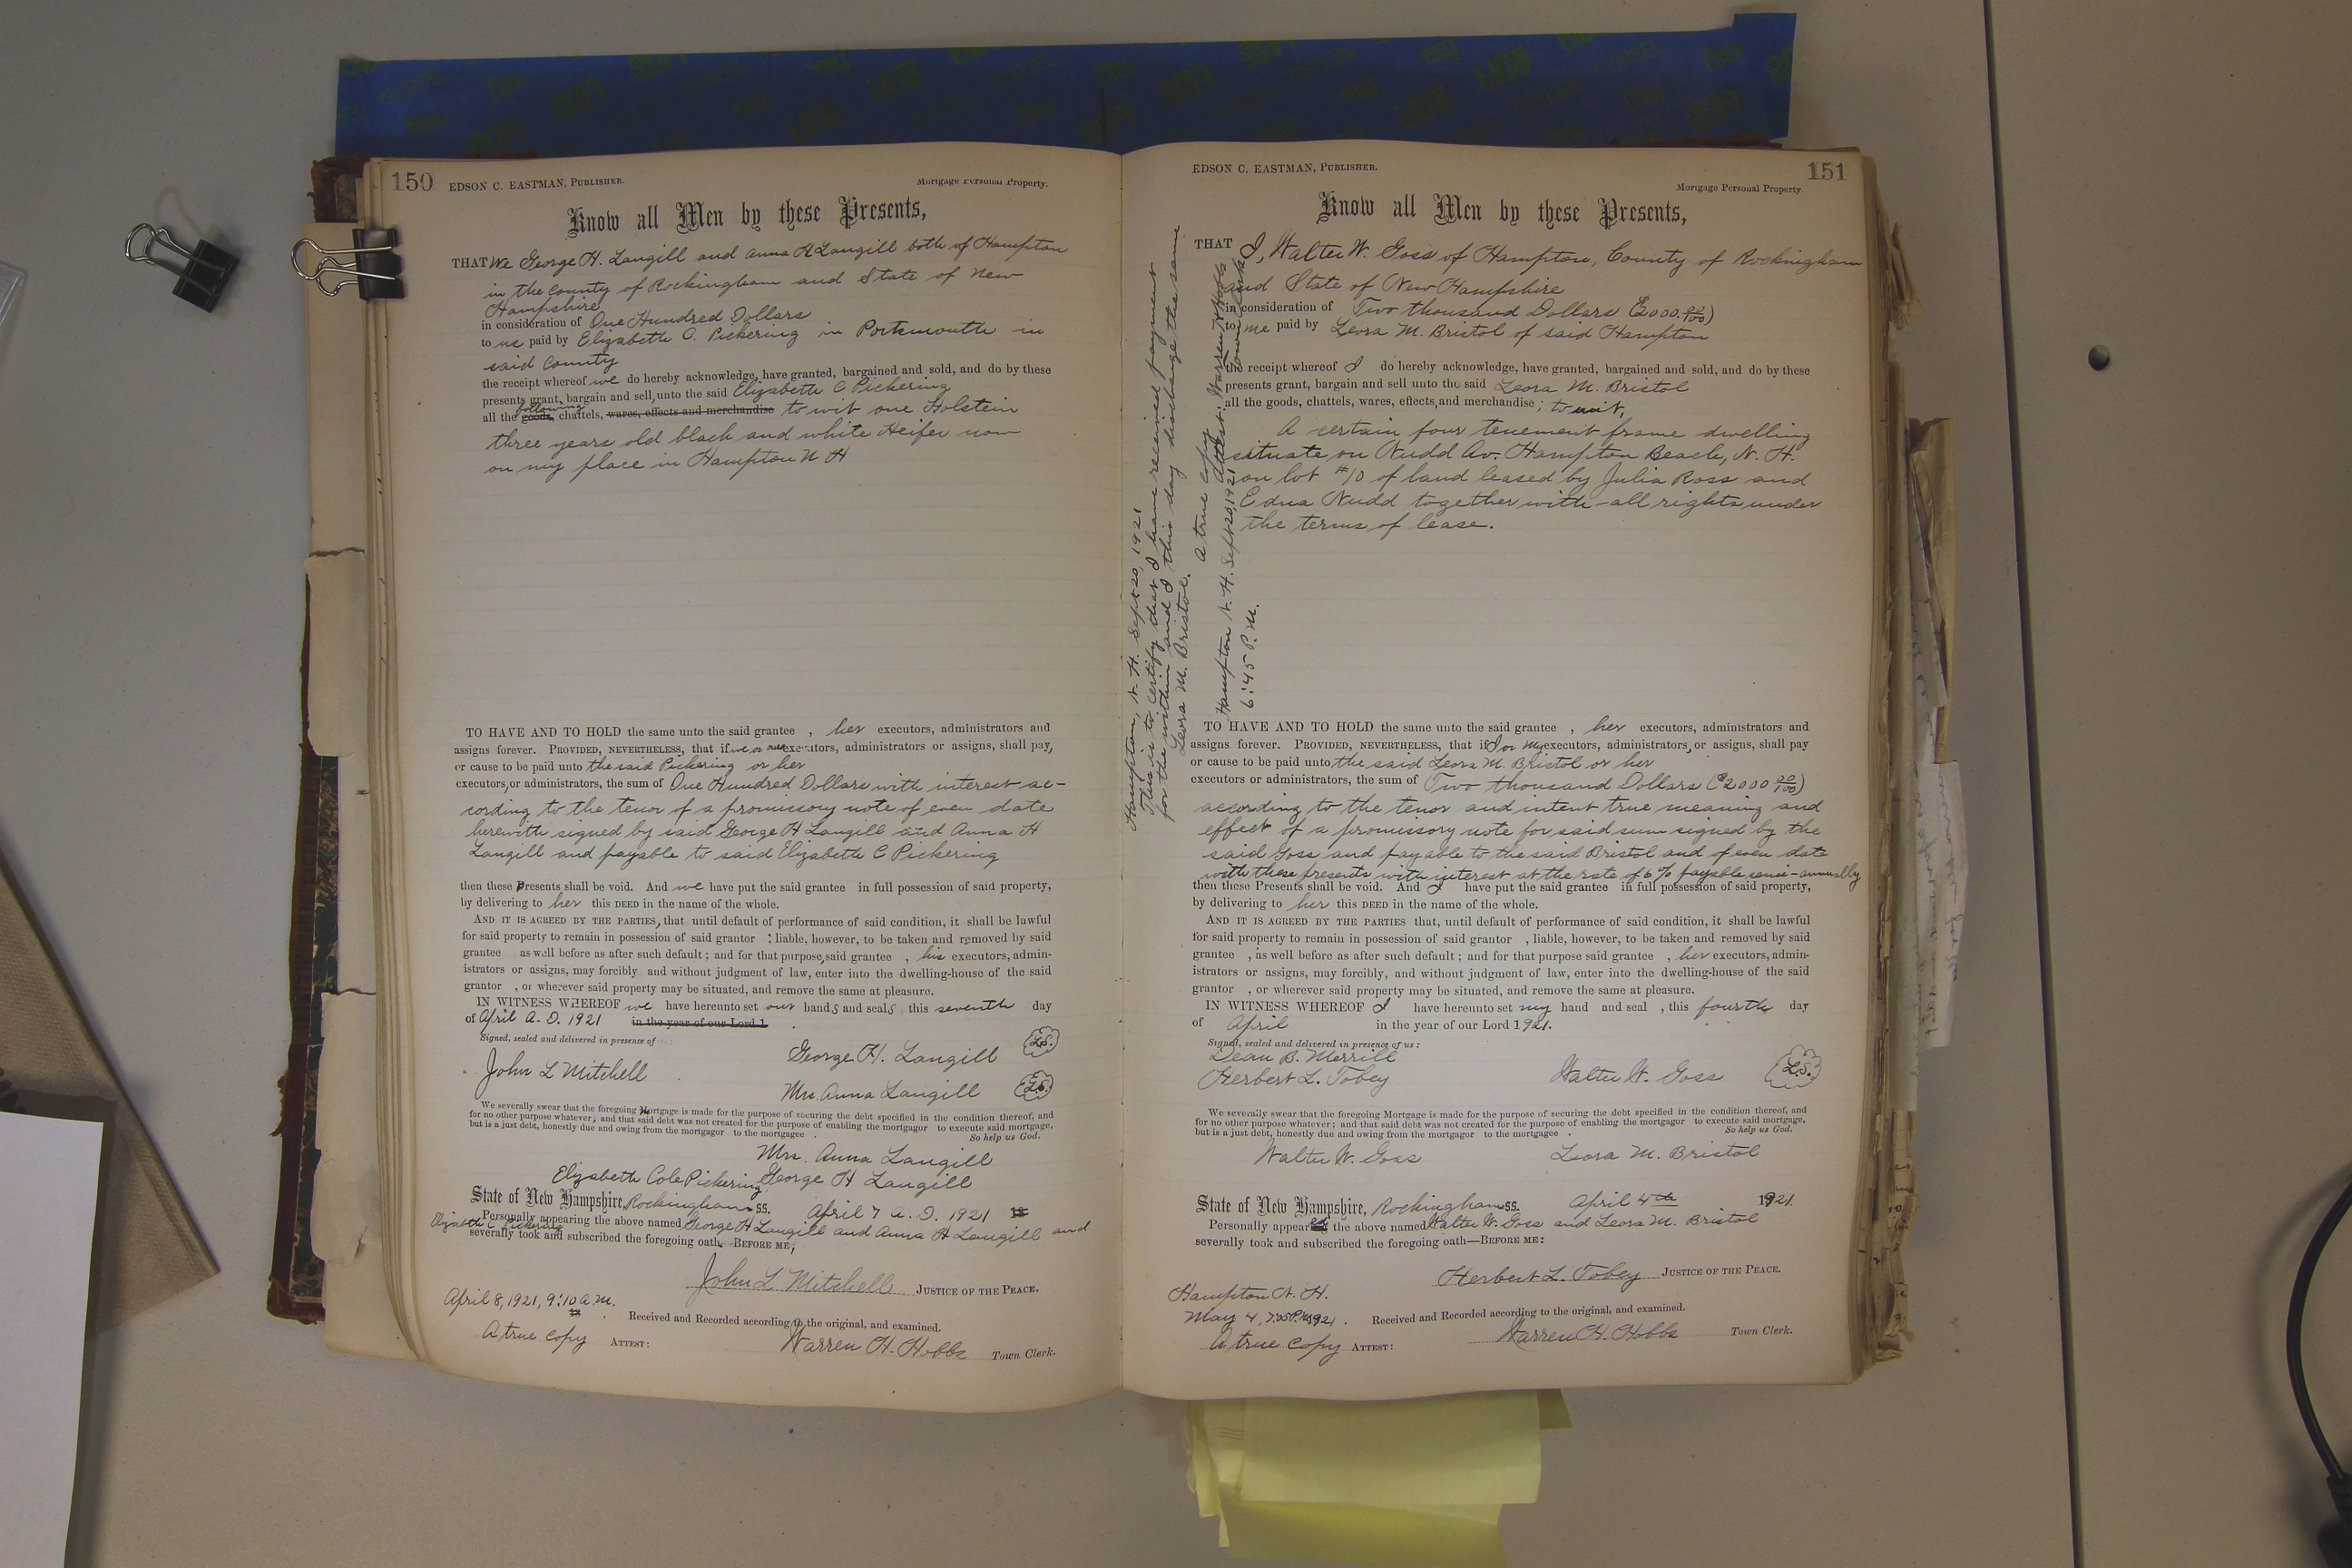 150 EDSON C. EASTMAN, PUBLISHER. Mortgage Personal Property.
Know all Men by these Presents,
THAT We George H. Langill and Anna H Langill both of Hampton
in the County of Rockingham and State of New
Hampshire
in consideration of One Hundred Dollars
to us paid by Elizabeth C. Pickering in Portsmouth in
said County
the receipt whereof we do hereby acknowledge, have granted, bargained and sold, and do by these
presents grant, bargain and sell, unto the said Elizabeth C Pickering
following
all the goods, chattels, wares, effects and merchandise to wit one Holstein
three years old black and white Heifer now
on my place in Hampton N H
TO HAVE AND TO HOLD the same unto the said grantee , her executors, administrators and
assigns forever. PROVIDED, NEVERTHELESS, that if we or our executors, administrators or assigns, shall pay,
or cause to be paid unto the said Pickering or her
executors, or administrators, the sum of One Hundred Dollars with interest ac-
cording to the tenor of a promissory note of even date
herewith signed by said George H Langill and Anna H
Langill and payable to said Elizabeth C Pickering
then these Presents shall be void. And we have put the said grantee in full possession of said property,
by delivering to her this DEED in the name of the whole.
AND IT IS AGREED BY THE PARTIES, that until default of performance of said condition, it shall be lawful
for said property to remain in possession of said grantor ; liable, however, to be taken and removed by said
grantee as well before as after such default ; and for that purpose, said grantee , his executors, admin-
istrators or assigns, may forcibly and without judgment of law, enter into the dwelling-house of the said
grantor , or wherever said property may be situated, and remove the same at pleasure.
IN WITNESS WHEREOF we have hereunto set our hands and seals this seventh day
of April A. D. 1921 in the year of our Lord 1
Signed, sealed and delivered in presence of
George H. Langill L.S.
John L Mitchell
Mrs. Anna Langill L.S.
We severally swear that the foregoing Mortgage is made for the purpose of securing the debt specified in the condition thereof, and
for no other purpose whatever, and that said debt was not created for the purpose of enabling the mortgagor to execute said mortgage,
but is a just debt, honestly due and owing from the mortgagor to the mortgagee . So help us God.
Mrs. Anna Langill
Elizabeth Cole Pickering George H Langill
State of New Hampshire, Rockingham ss. April 7 A. D. 1921
Elizabeth C Pickering
Personally appearing the above named George H Langill and Anna H Langill and
severally took and subscribed the foregoing oath. BEFORE ME,
John L Mitchell JUSTICE OF THE PEACE.
April 8, 1921, 9:10 A.M.
Received and Recorded according to the original, and examined.
A true copy ATTEST: Warren H. Hobbs Town Clerk.
EDSON C. EASTMAN, PUBLISHER. 151
Mortgage Personal Property.
Know all Men by these Presents,
THAT I, Walter W. Goss of Hampton, County of Rockingham
and State of New Hampshire
in consideration of Two thousand Dollars (2000.00/100)
to me paid by Leora M. Bristol of said Hampton
the receipt whereof I do hereby acknowledge, have granted, bargained and sold, and do by these
presents grant, bargain and sell unto the said Leora M. Bristol
all the goods, chattels, wares, effects, and merchandise ; to wit,
A certain four tenement frame dwelling
situate on Nudd Av. Hampton Beach, N. H.
on lot #10 of land leased by Julia Ross and
Edna Nudd together with all rights under
the terms of lease.
Hampton, N. H. Sept 20, 1921
This is to certify that I have received payment
for the within and I this day discharge the same
Leora M. Bristol.
A true copy Attest: Warren H. Hobbs
Town Clerk
Hampton N. H. Sept 20, 1921
6:45 P.M.
TO HAVE AND TO HOLD the same unto the said grantee , her executors, administrators and
assigns forever. PROVIDED, NEVERTHELESS, that if I or my executors, administrators, or assigns, shall pay
or cause to be paid unto the said Leora M. Bristol or her
executors or administrators, the sum of Two thousand Dollars ($2000 00/100)
according to the tenor and intent true meaning and
effect of a promissory note for said sum signed by the
said Goss and payable to the said Bristol and of even date
with these presents with interest at the rate of 6% payable semi-annually
then these Presents shall be void. And I have put the said grantee in full possession of said property,
by delivering to her this DEED in the name of the whole.
AND IT IS AGREED BY THE PARTIES that, until default of performance of said condition, it shall be lawful
for said property to remain in possession of said grantor , liable, however, to be taken and removed by said
grantee , as well before as after such default ; and for that purpose said grantee , her executors, admin-
istrators or assigns, may forcibly, and without judgment of law, enter into the dwelling-house of the said
grantor , or wherever said property may be situated, and remove the same at pleasure.
IN WITNESS WHEREOF I have hereunto set my hand and seal , this fourth day
of April in the year of our Lord 1921.
Signed, sealed and delivered in presence of us :
Dean B. Merrill
Herbert L. Tobey Walter W. Goss L.S.
We severally swear that the foregoing Mortgage is made for the purpose of securing the debt specified in the condition thereof, and
for no other purpose whatever ; and that said debt was not created for the purpose of enabling the mortgagor to execute said mortgage,
but is a just debt, honestly due and owing from the mortgagor to the mortgagee . So help us God.
Walter W. Goss Leora M. Bristol
State of New Hampshire, Rockingham ss. April 4th 1921
Personally appear the above named Walter W. Goss and Leora M. Bristol
severally took and subscribed the foregoing oath—BEFORE ME:
Herbert L. Tobey JUSTICE OF THE PEACE.
Hampton N. H.
May 4, 1921. Received and Recorded according to the original, and examined.
A true copy ATTEST: Warren H. Hobbs Town Clerk.